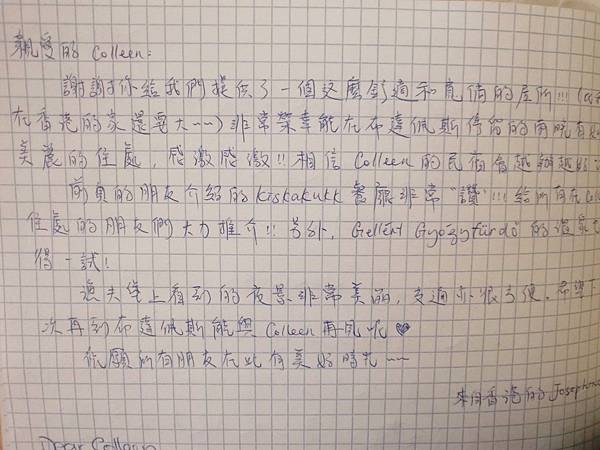 親愛的 Colleen:
謝謝你給我們提供了一個這麼舒適和完備的居所!!! (
在香港的家還要大~~) 非常榮幸能在布達佩斯停留的
美麗的住處, 感激感激!! 相信 Colleen 的民宿會越辦越好
前頁的朋友介紹的 Kiskakukk 餐廳非常"讚"!!! 給所有在
住處的朋友們大力推介!! 另外, Gellért Gyógyfürdő 的溫泉
得一試!
漁夫堡上看到的夜景非常美麗, 交通亦很方便. 希望下
次再到布達佩斯能與 Colleen 再見呢 ♥
祝願所有朋友在此有美好時光~~
來自香港的 Josephine
Dear Colleen